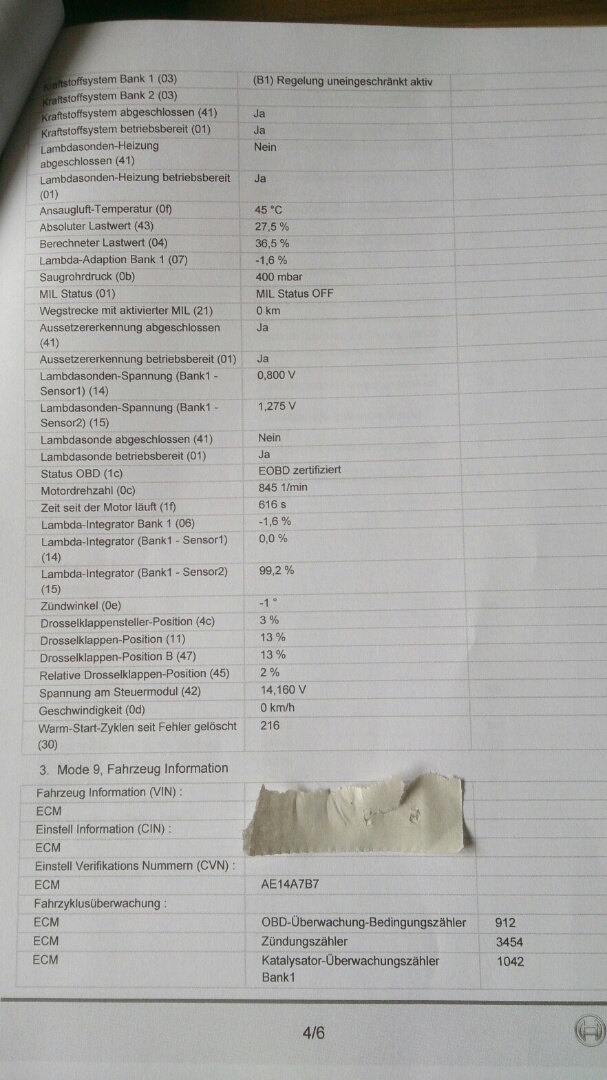 Kraftstoffsystem Bank 1 (03) (B1) Regelung uneingeschränkt aktiv
Kraftstoffsystem Bank 2 (03)
Kraftstoffsystem abgeschlossen (41) Ja
Kraftstoffsystem betriebsbereit (01) Ja
Lambdasonden-Heizung Nein
abgeschlossen (41)
Lambdasonden-Heizung betriebsbereit Ja
(01)
Ansaugluft-Temperatur (0f) 45 °C
Absoluter Lastwert (43) 27,5 %
Berechneter Lastwert (04) 36,5 %
Lambda-Adaption Bank 1 (07) -1,6 %
Saugrohrdruck (0b) 400 mbar
MIL Status (01) MIL Status OFF
Wegstrecke mit aktivierter MIL (21) 0 km
Aussetzererkennung abgeschlossen Ja
(41)
Aussetzererkennung betriebsbereit (01) Ja
Lambdasonden-Spannung (Bank1 - 0,800 V
Sensor1) (14)
Lambdasonden-Spannung (Bank1 - 1,275 V
Sensor2) (15)
Lambdasonde abgeschlossen (41) Nein
Lambdasonde betriebsbereit (01) Ja
Status OBD (1c) EOBD zertifiziert
Motordrehzahl (0c) 845 1/min
Zeit seit der Motor läuft (1f) 616 s
Lambda-Integrator Bank 1 (06) -1,6 %
Lambda-Integrator (Bank1 - Sensor1) 0,0 %
(14)
Lambda-Integrator (Bank1 - Sensor2) 99,2 %
(15)
Zündwinkel (0e) -1 °
Drosselklappensteller-Position (4c) 3 %
Drosselklappen-Position (11) 13 %
Drosselklappen-Position B (47) 13 %
Relative Drosselklappen-Position (45) 2 %
Spannung am Steuermodul (42) 14,160 V
Geschwindigkeit (0d) 0 km/h
Warm-Start-Zyklen seit Fehler gelöscht 216
(30)
3. Mode 9, Fahrzeug Information
Fahrzeug Information (VIN) :
ECM
Einstell Information (CIN) :
ECM
Einstell Verifikations Nummern (CVN) :
ECM AE14A7B7
Fahrzyklusüberwachung :
ECM OBD-Überwachung-Bedingungszähler 912
ECM Zündungszähler 3454
ECM Katalysator-Überwachungszähler 1042
Bank1
4/6